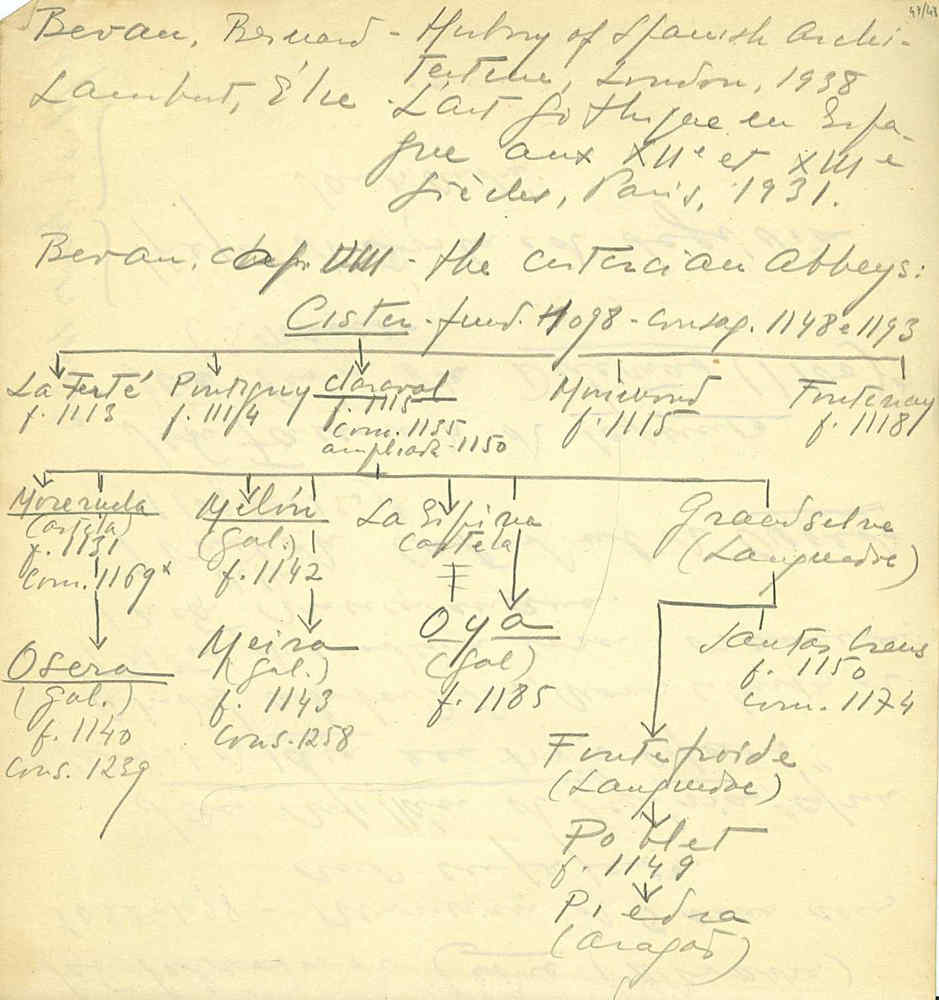 47/43
Bevan, Bernard - History of Spanish Archi-
tecture, London, 1938
Lambert, Élie - L'art gothique en Espa-
gne aux XIIe et XIIIe
siècles, Paris, 1931.
Bevan, chap. VIII - the cistercian Abbeys:
Cister - fund. 1098 - consag. 1148 e 1193
La Ferté Pontigny Claraval Morimond Fontenay
f. 1113 f. 1114 f. 1115 f. 1115 f. 1118
com. 1135
ampliada 1150
Moreruela Melón La Espina Grandselve
(Castela) (Gal.) Castela (Languedoc)
f. 1131 f. 1142
Com. 1169 x
Osera Meira Oya Santas Creus
(Gal.) (Gal.) (Gal) f. 1150
f. 1140 f. 1143 f. 1185 com. 1174
Cons. 1239 Cons. 1258
Fontefroide
(Languedoc)
Poblet
f. 1149
Piedra
(Aragão)